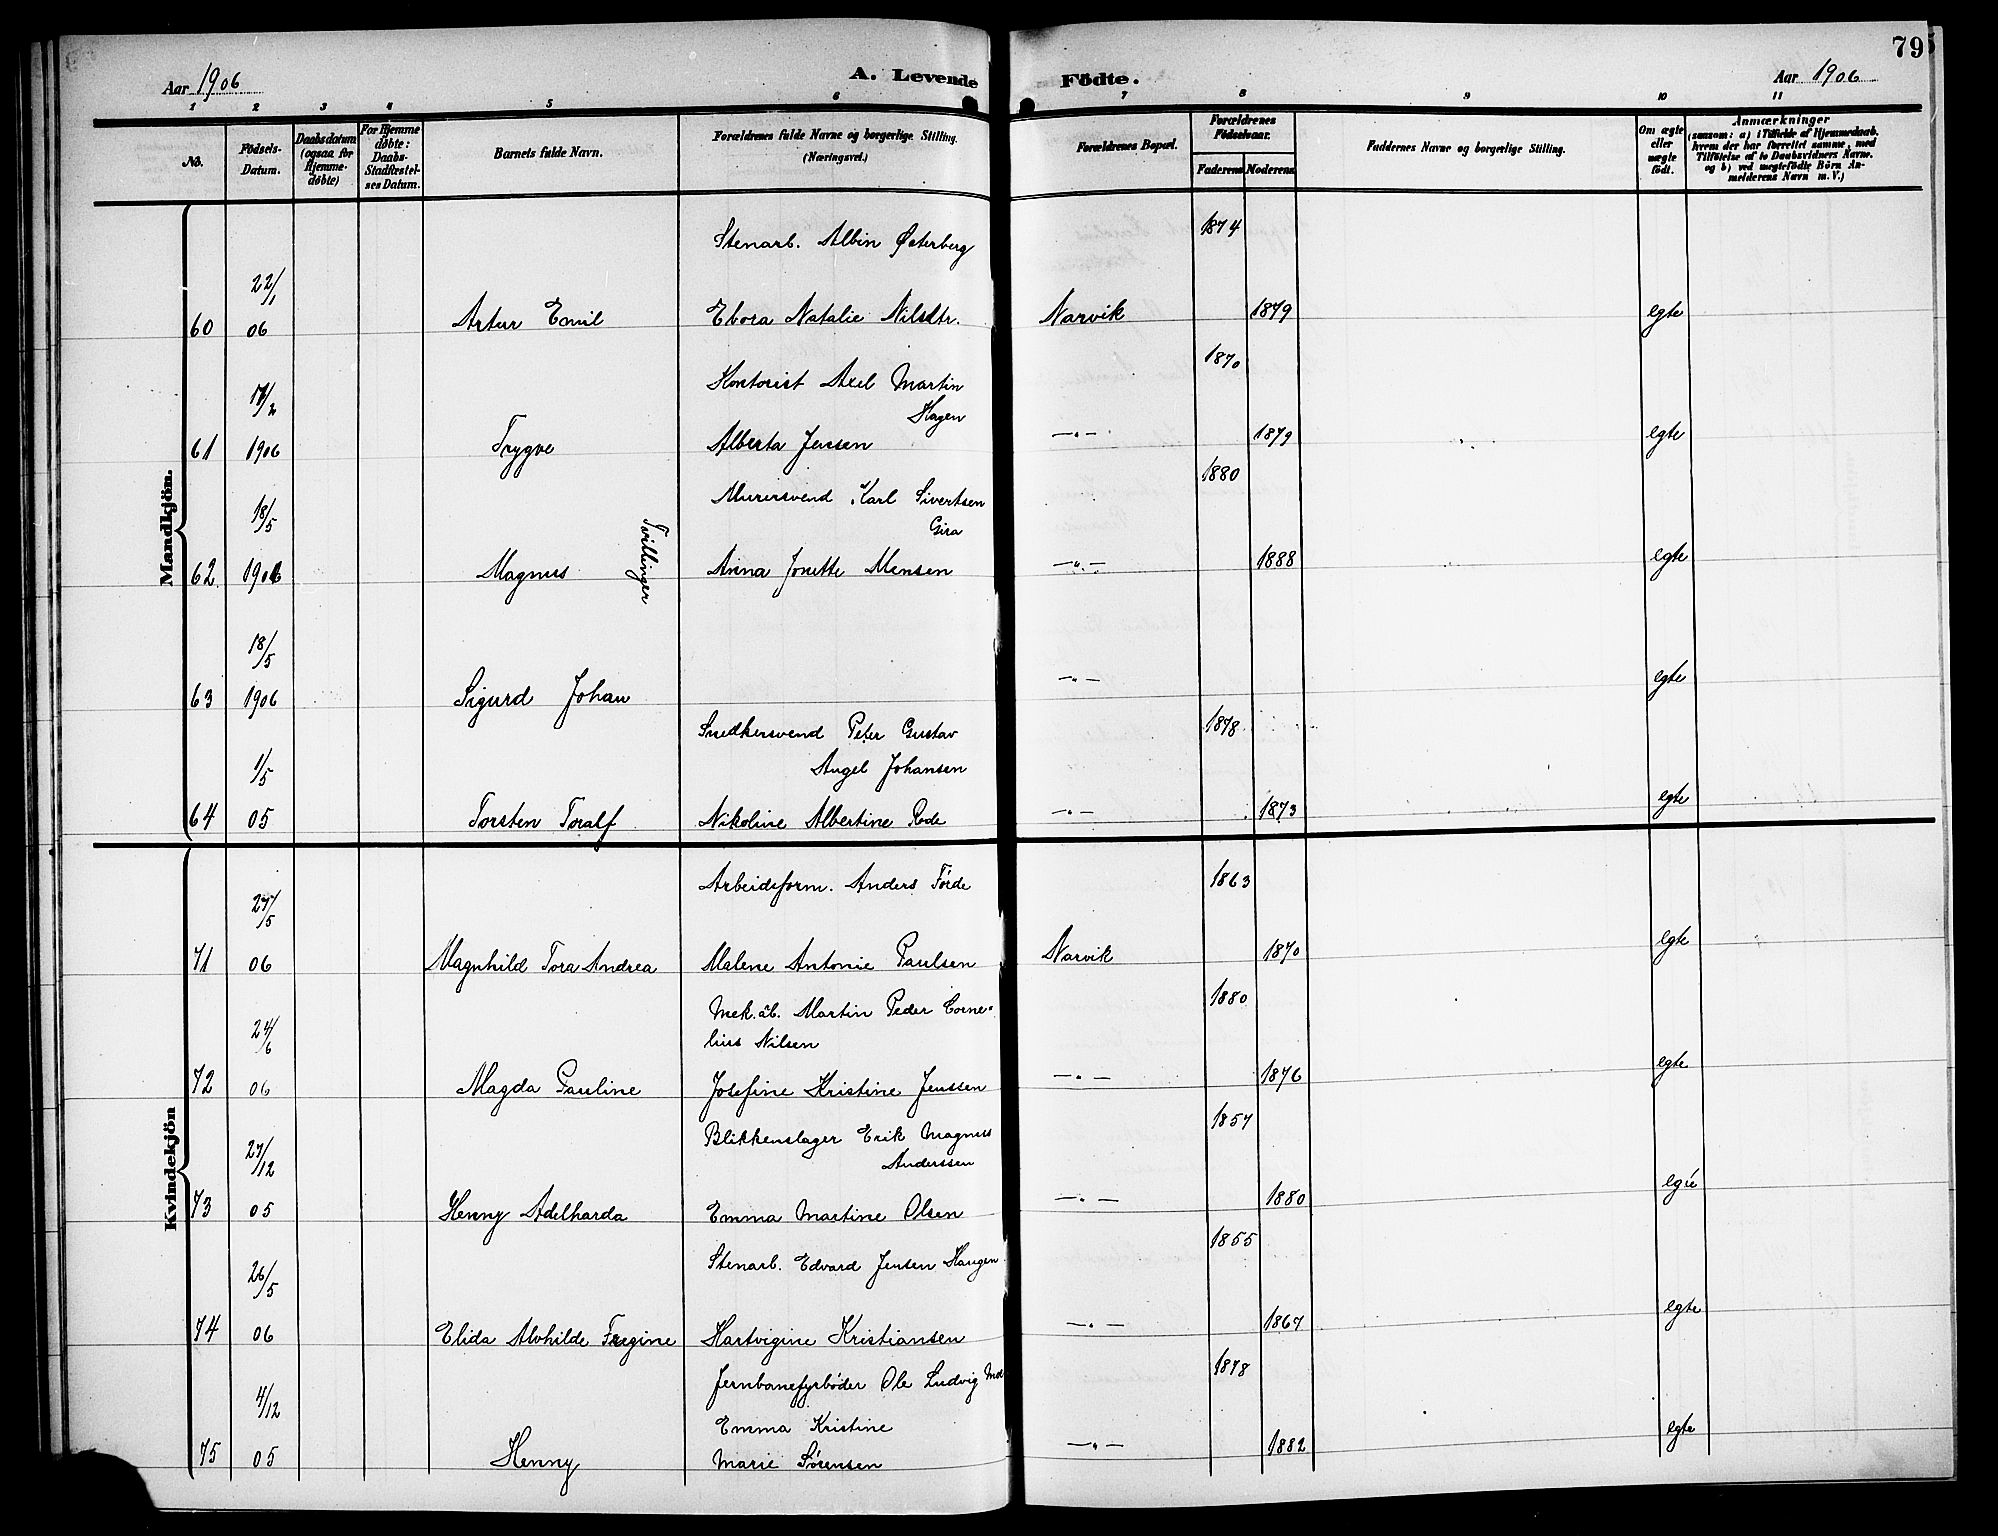 79
Aar 1906
A. Levende Födte.
Aar 1906
1 2 3 4 5 6 7 8 9 10 11
No.
Födsels-
Datum.
Daabsdatum
(ogsaa for
Hjemme-
døbte)
For Hjemme
døbte:
Daabs-
Stadfæstel-
ses Datum.
Barnets fulde Navn.
Forældrenes fulde Navne og borgerlige Stilling.
(Næringsvei.)
Forældrenes Bopæl.
Forældrenes
Födselsaar.
Faderens
Moderens
Faddernes Navne og borgerlige Stilling.
Om ægte
eller
uægte
født.
Anmærkninger
(saasom: a) i Tilfælde af Hjemmedaab,
hvem der har forrettet samme, med
Tilföielse af to Daabsvidners Navne.
og b) ved uægtefödte Börn An-
melderens Navn m. V.)
Mandkjön.
Stenarb. Albin Østerberg 1874
22/1
60 06 Artur Emil Ebora Natalie Nilsdtr. Narvik 1879 egte
Kontorist Axel Martin 1870
17/2 Hagen
61 1906 Trygve Alberta Jensen —„— 1879 egte
Murersvend Karl Sivertsen 1880
18/5 Gira
Tvillinger
62 1906 Magnus Anna Jonette Mensen —„— 1888 egte
18/5
63 1906 Sigurd Johan —„— egte
Snedkersvend Peter Gustav 1878
1/5 Angel Johansen
64 05 Torsten Toralf Nikoline Albertine Rode —„— 1873 egte
Kvindekjön
Arbeidsform. Anders Førde 1863
27/5
71 06 Magnhild Tora Andrea Malene Antonie Paulsen Narvik 1870 egte
Mek. arb. Martin Peder Corne= 1880
24/6 lius Nilsen
72 06 Magda Pauline Josefine Kristine Jenssen —„— 1876 egte
Blikkenslager Erik Magnus 1857
27/12 Anderssen
73 05 Henny Adelharda Emma Martine Olsen —„— 1880 egte
Stenarb. Edvard Jensen Haugen 1855
26/5
74 06 Elida Alvhilde Fregine Hartvigine Kristiansen —„— 1867 egte
Jernbanefyrbøder Ole Ludvig 1878
4/12 Emma Kristine
75 05 Henny Marie Sørensen —„— 1882 egte